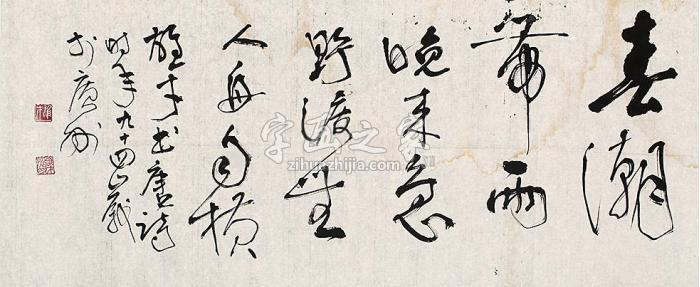 春潮
带雨
晚来急
野渡無
人舟自横
雄才书唐诗
时年九十四岁
于广州
字在之家
zihunzhijia.com